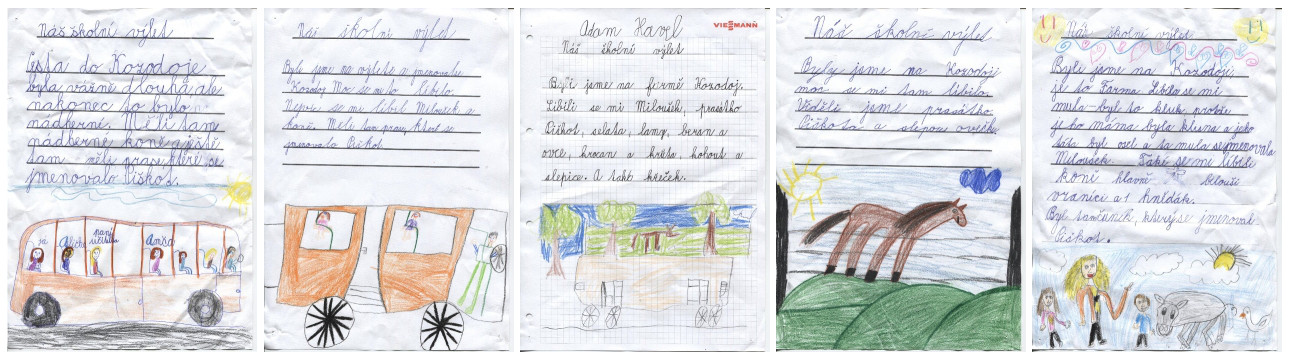 Náš školní výlet
Cesta do Kozodoje
byla vážně dlouhá ale
nakonec to bylo
nádherné. Měli tam
nádherné koně a ještě
tam měli prase které se
jmenovalo Čiškot.
já
Alička
paní
učitelka
Anča
Náš školní výlet
Byli jsme na výletě v jmenovalo
Kozodoj Moc se mi to líbilo.
Nejvíc se mi líbil Miloušek a
koně. Měli tam prase, které se
jmenovalo Čiškot.
Adam Havel
VIESSMANN
Náš školní výlet
Byli jsme na farmě Kozodoj.
Líbili se mi Miloušek, prasátko
Čiškot, selata, lamy, beran a
ovce, krocan a krůta, kohout a
slepice. A také křeček.
Náš školní výlet
Byly jsme na Kozodoji
moc se mi tam líbilo.
Viděli jsme prasátko
Čiškota a slepou ovečku.
Náš školní výlet
Byli jsme na Kozodoji
je to Farma. Líbila se mi
mula byl to kluk, protže
jeho máma byla klisna a jeho
táta byl osel a ta mula se jmenovala
Miloušek. Také se mi líbili
koně hlavně bělouši
vraníci a 1 hnědák.
Byl tam čuník, který se jmenoval
Čiškot.